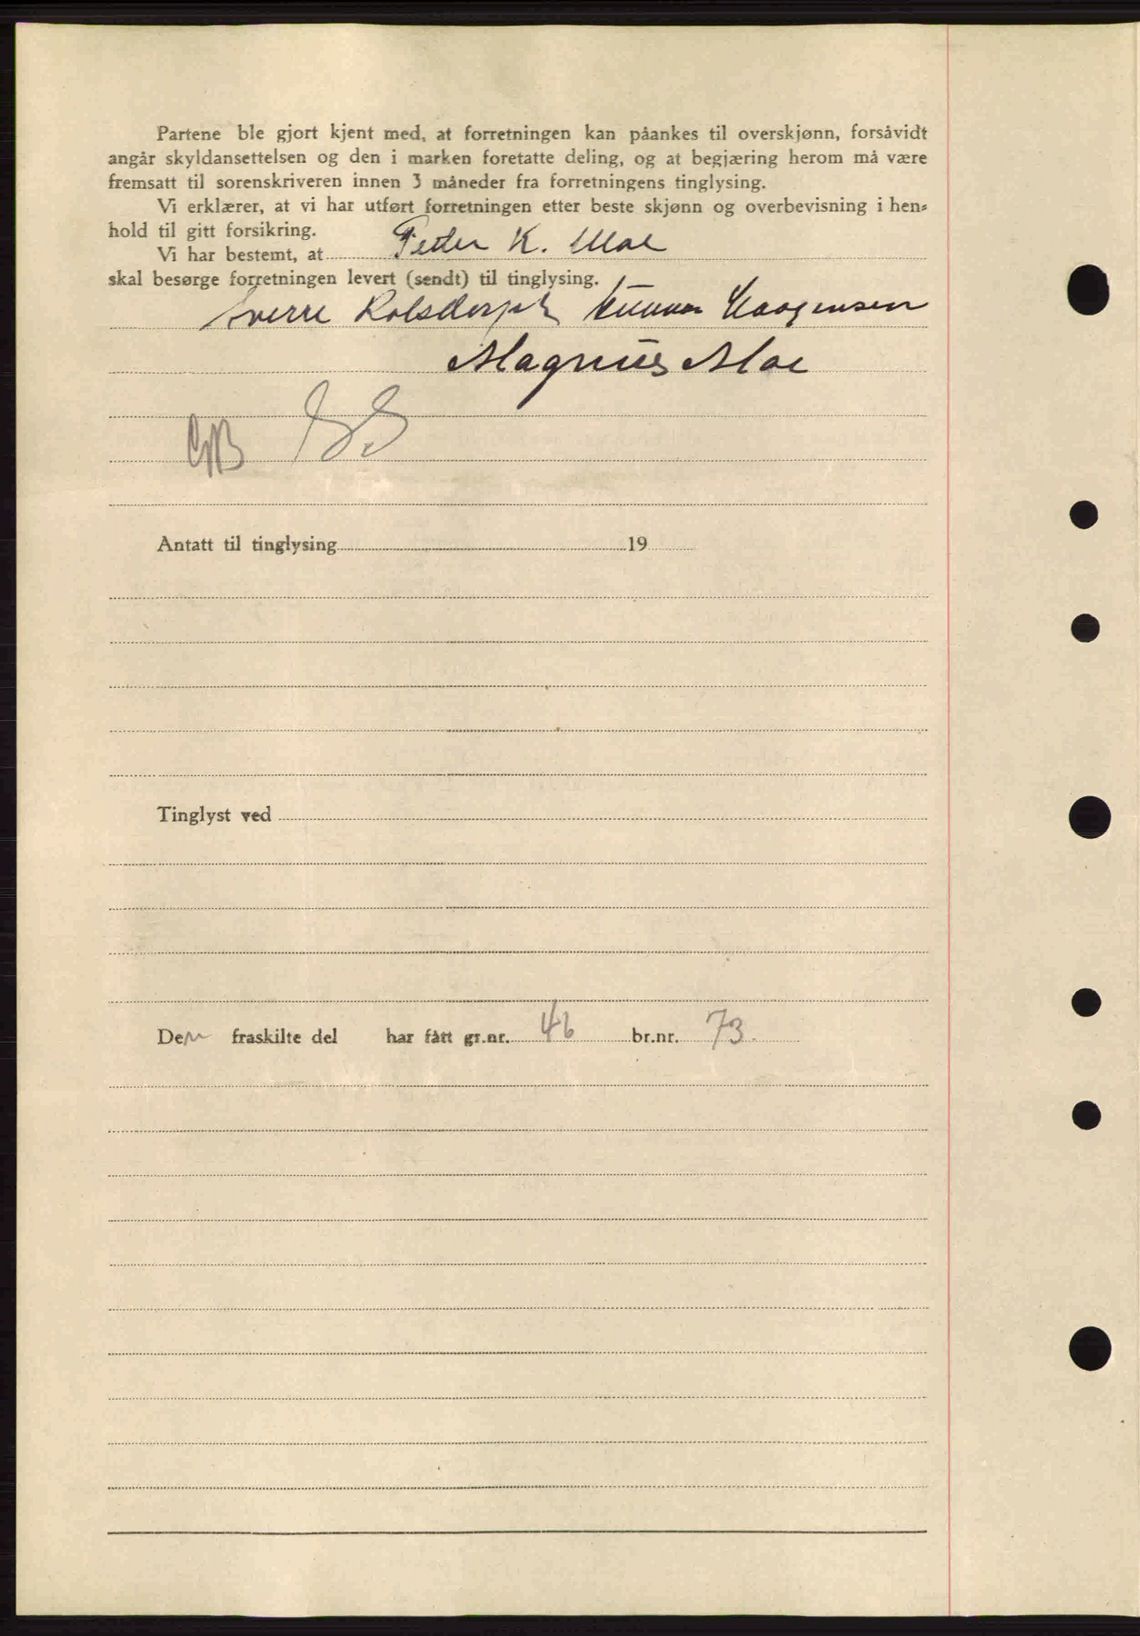 Partene ble gjort kjent med, at forretningen kan påankes til overskjønn, forsåvidt
angår skyldansettelsen og den i marken foretatte deling, og at begjæring herom må være
fremsatt til sorenskriveren innen 3 måneder fra forretningens tinglysing.
Vi erklærer, at vi har utført forretningen etter beste skjønn og overbevisning i hen-
hold til gitt forsikring.
Vi har bestemt, at Peder K. Moe
skal besørge forretningen levert (sendt) til tinglysing.
Sverre Gunnar Haagensen
Magnus Moe
Antatt til tinglysing 19
Tinglyst ved
Den fraskilte del har fått gr.nr. 46 br.nr. 73.